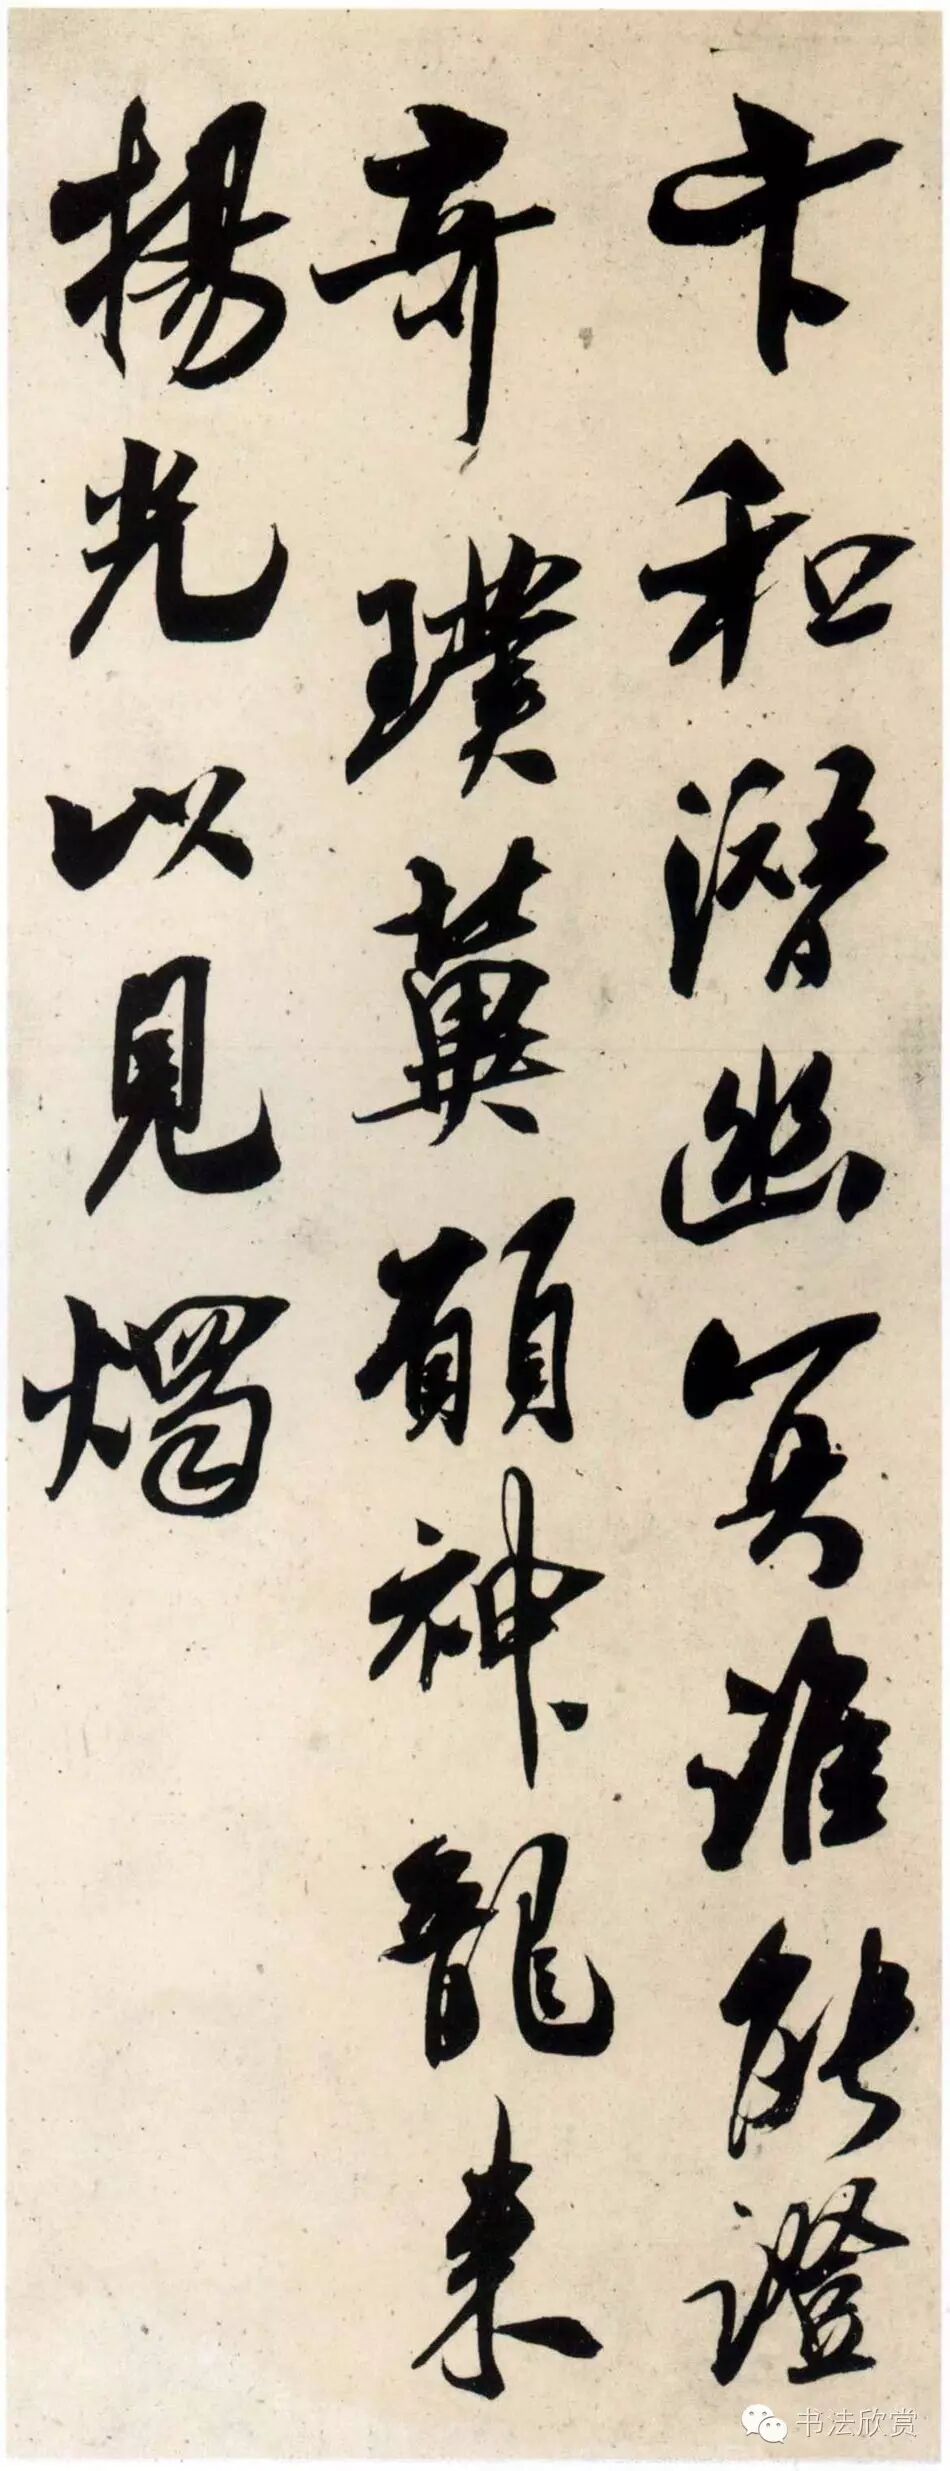 卞和潛幽冥誰能證
奇璞冀願神龍来
揚光以見燭
书法欣赏